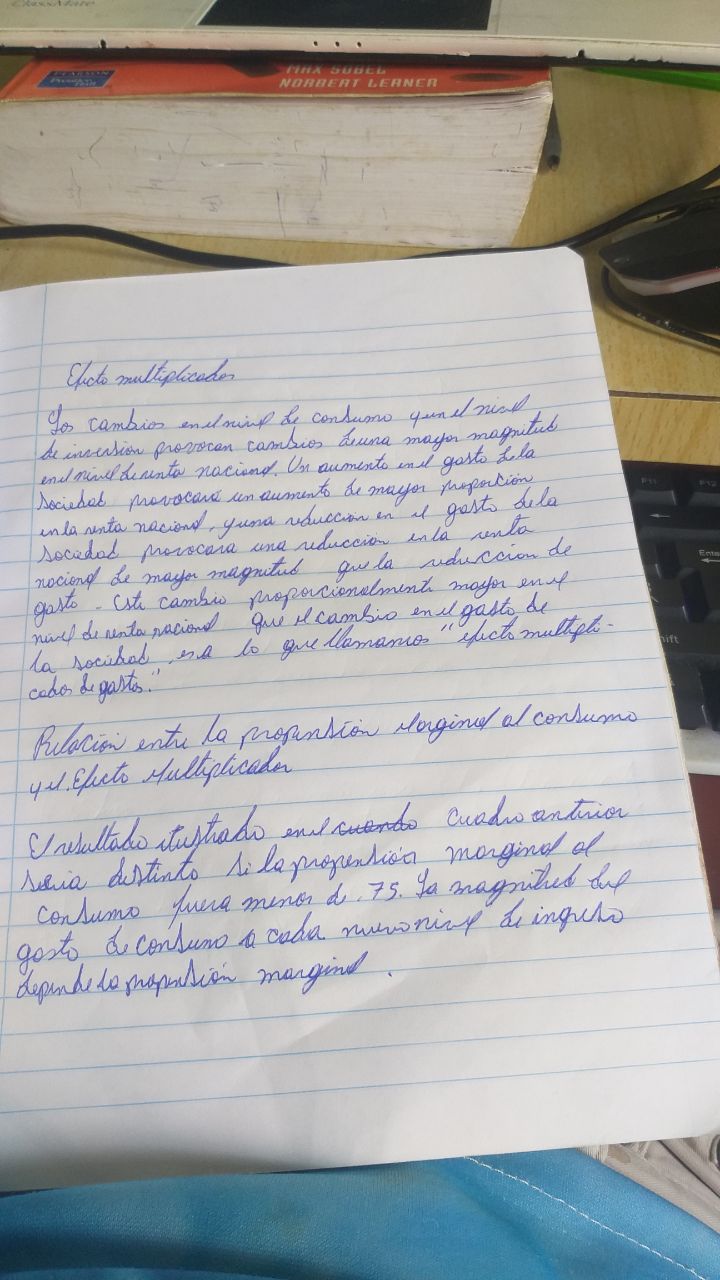 ClassMate
PEARSON
Prentice
Hall
MAX SOBEL
NORBERT LERNER
F11
F12
Enter
Shift
Efecto multiplicador
Los cambios en el nivel de consumo y en el nivel
de inversión provocan cambios de una mayor magnitud
en el nivel de renta nacional. Un aumento en el gasto de la
sociedad provocará un aumento de mayor proporción
en la renta nacional, y una reducción en el gasto de la
sociedad provocara una reducción en la renta
nacional de mayor magnitud que la reducción de
gasto - Este cambio proporcionalmente mayor en el
nivel de renta nacional que el cambio en el gasto de
la sociedad, es a lo que llamamos "efecto multipli-
cador de gastos."
Relación entre la propensión Marginal al consumo
y el Efecto Multiplicador
El resultado ilustrado en el cuando cuadro anterior
seria distinto si la propensión marginal al
consumo fuera menor de .75. La magnitud del
gasto de consumo a cada nuevo nivel de ingreso
depende la propensión marginal.